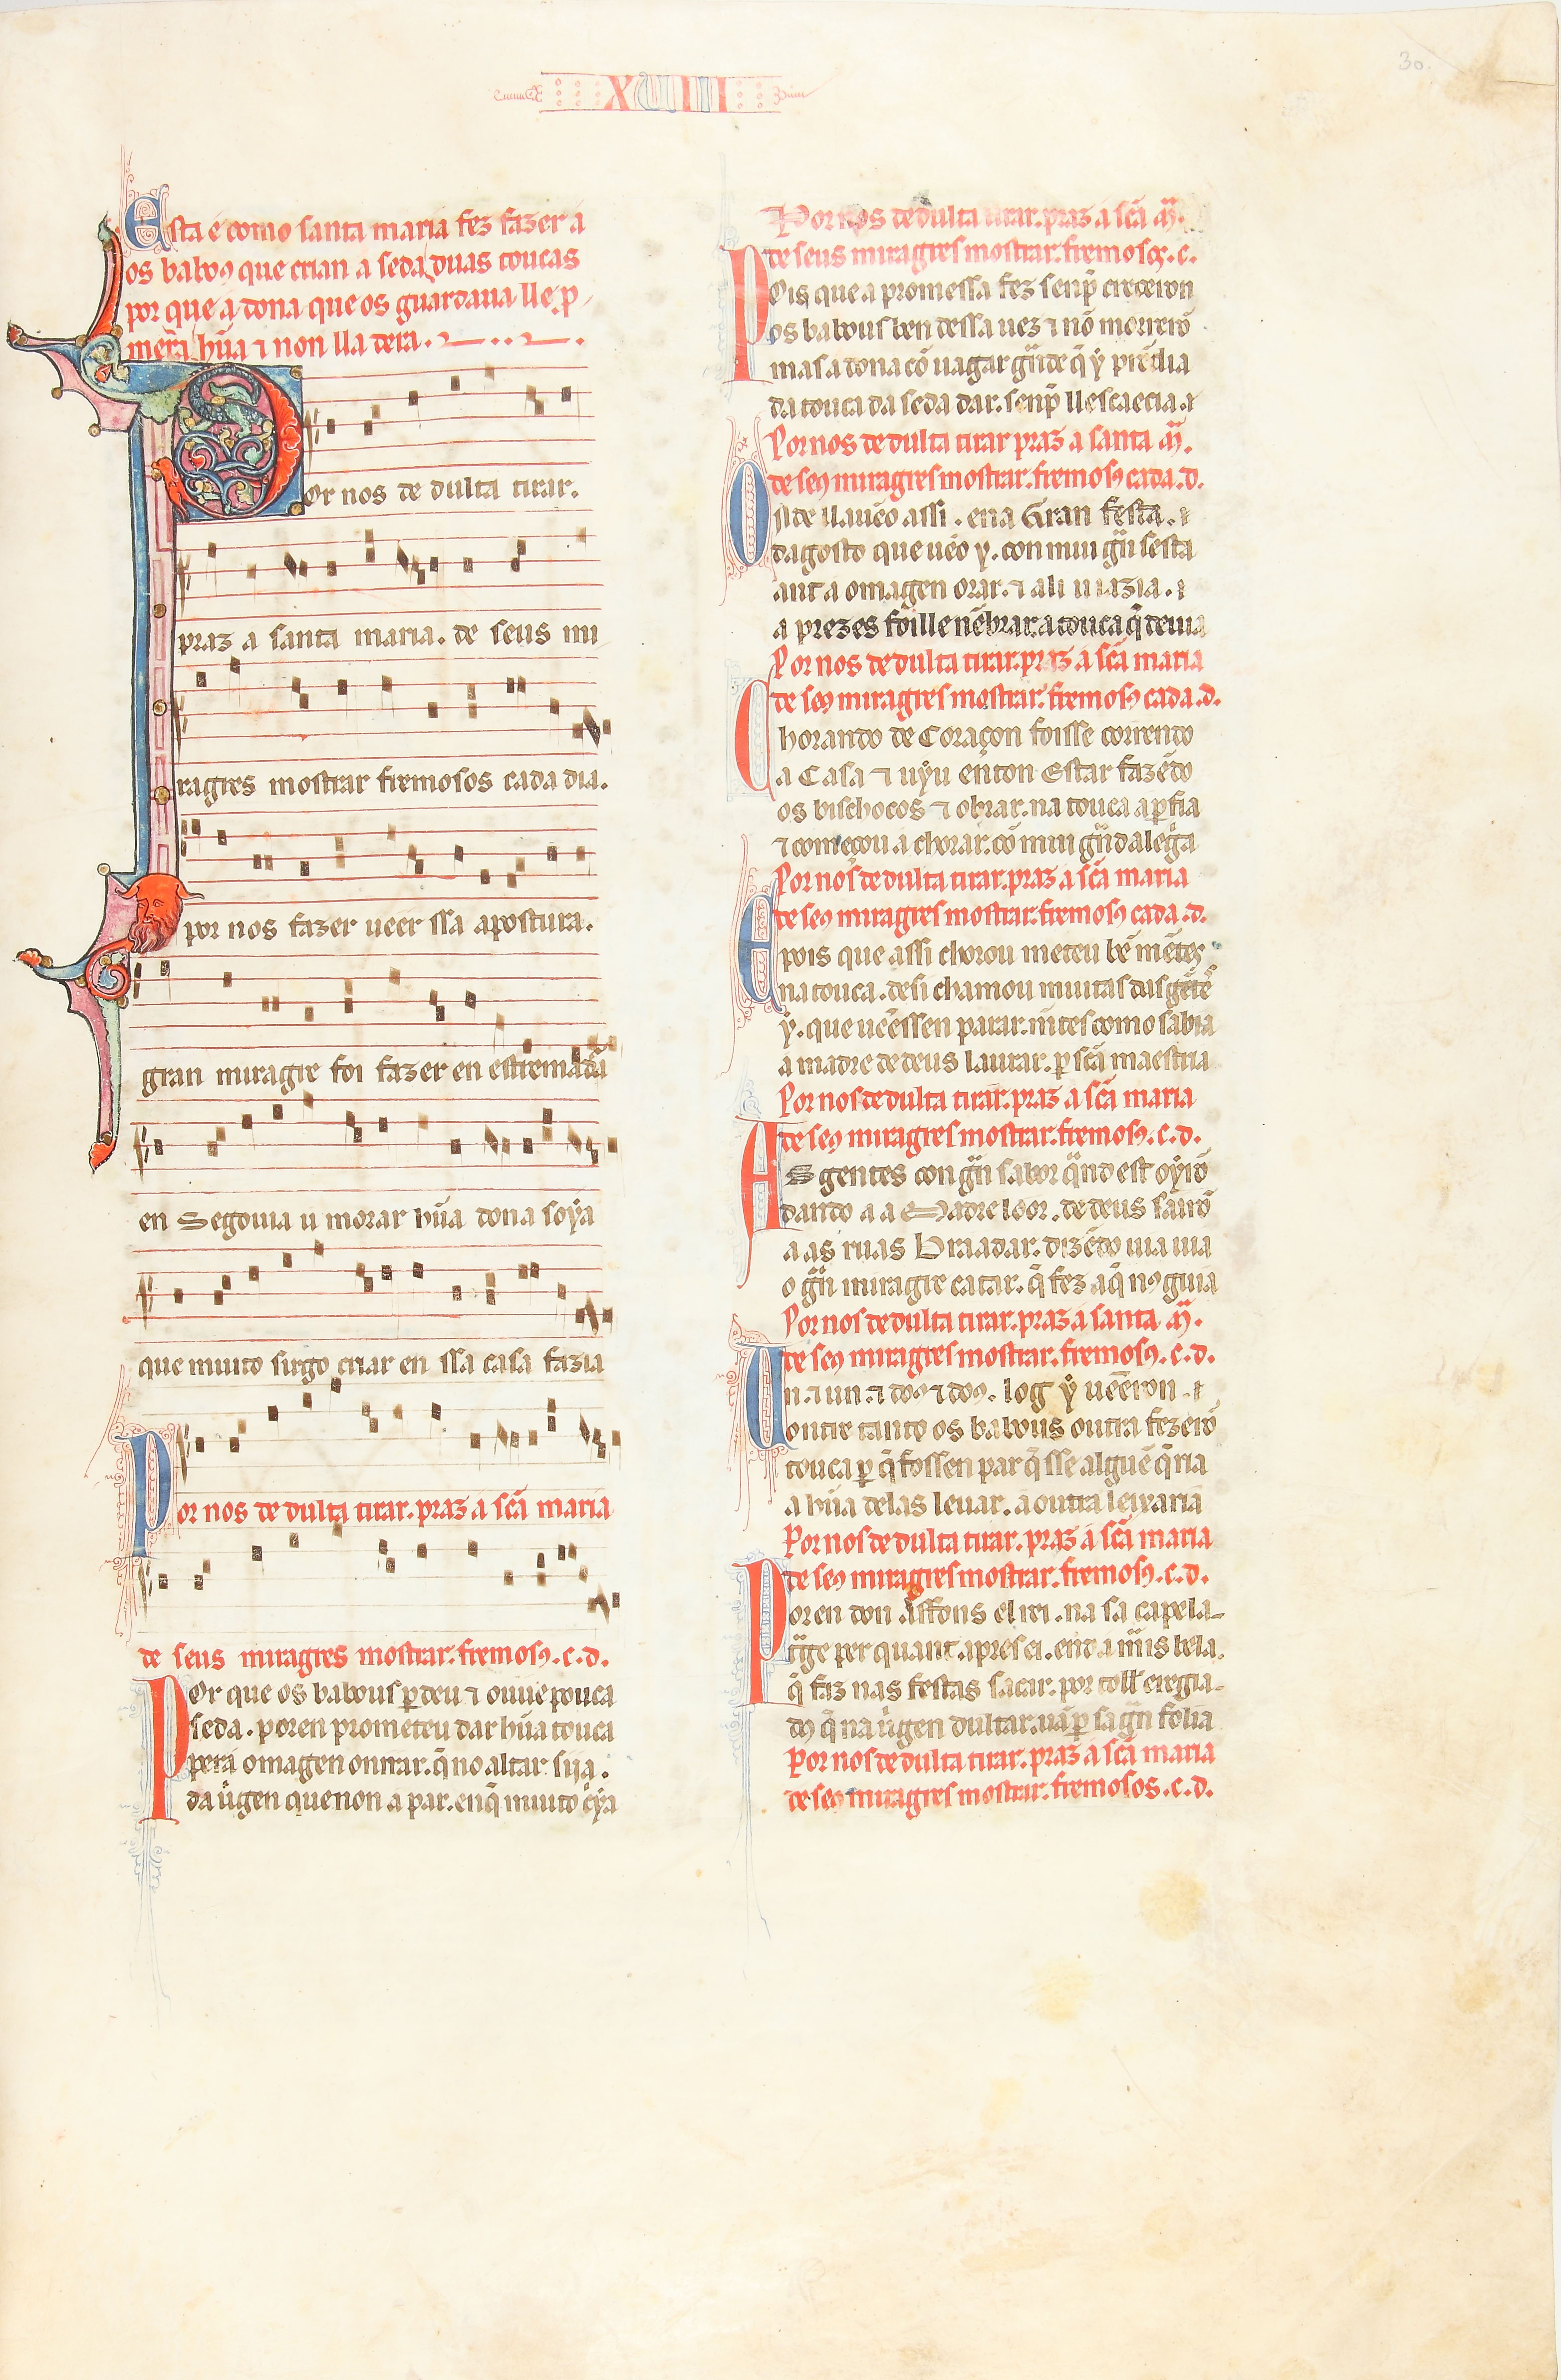 XVIII
30.
Esta é como santa maria fez fazer a
os babous que crian a seda duas toucas
por que a dona que os guardaua lle p
meťa hũa ⁊ non lla dera.
Por nos de dulta tirar.
praz a santa maria. de seus mi
ragres mostrar fremosos cada dia.
por nos fazer ueer ssa apostura.
gran miragre foi fazer en estremadũ
en Segouia u morar hũa dona soýa
que muito sirgo criar en ssa casa fazia
Por nos de dulta tirar. praz a sc̃a maria
de seus miragres mostrar. fremosꝯ. c. d.
Por que os babous ꝑdeu ⁊ ouue pouca
seda. poren prometeu dar hũa touca
pera omagen onrrar. q̃ no altar siia.
da ùgen que non a par. en q̃ muito c̃ýa
Por nos de dulta tirar. praz a sc̃a M̃.
de seus miragres mostrar. fremosꝯ. c.
Pois que a promessa fez senp̃ creceron
os babous ben dessa uez ⁊ nõ morrerõ
mas a dona cõ uagar gr̃nde q̃ ý prẽdia
da touca da seda dar. senp̃ ll escaecia.
Por nos de dulta tirar praz a santa M̃.
de seꝯ miragres mostrar. fremosꝯ cada. d.
Onde ll auẽo assi. ena Gran festa.
dagosto que uẽo y. con mui gr̃n sesta
ant a omagen orar. ⁊ ali u iazia.
a prezes foille nẽbrar. a touca q̃ deuia
Por nos de dulta tirar. praz a sc̃a maria
de seꝯ miragres mostrar. fremosꝯ cada. d.
Chorando de Coraçon foisse correndo
a Casa ⁊ uýu enton Estar fazẽdo
os bischocos ⁊ obrar. na touca a ꝑfia
⁊ começou a chorar. cõ mui gr̃nd alegⁱa
Por nos de dulta tirar. praz a sc̃a maria
de seꝯ miragres mostrar. fremosꝯ cada. d.
E pois que assi chorou meteu bẽ mẽtes
na touca. desi chamou muitas das gẽtes
ý. que uẽessen parar. mẽtes como sabia
a madre de deus laurar. ꝑ sc̃a maestria
Por nos de dulta tirar. praz a sc̃a maria
de seꝯ miragres mostrar. fremosꝯ. c. d.
As gentes con gr̃n sabor q̃nd est oýrõ
dando a a Madre loor. de deus sairõ
a as ruas Braadar. dizẽdo uia uia
o gr̃n miragre catar. q̃ fez a q̃ nꝯ guia
Por nos de dulta tirar. praz a santa M̃.
de seꝯ miragres mostrar. fremosꝯ. c. d.
Un. ⁊ un. ⁊ doꝯ ⁊ doꝯ. log ý ueẽron.
ontre tanto os babous outra fezerõ
touca ꝑ q̃ fossen par q̃ sse alguẽ q̃ria
a hũa delas leuar. a outra leixaria
Por nos de dulta tirar. praz a sc̃a maria
de seꝯ miragres mostrar. fremosꝯ. c. d.
Poren don Affons el rei. na sa capela
trage per quant. apres ei. end a mais bela.
q̃ faz nas festas sacar. por toll eregia
dꝯ q̃ na ùgen dultar. uã ꝑ sa gr̃n folia
Por nos de dulta tirar. praz a sc̃a maria
de seꝯ miragres mostrar. fremosos. c. d.